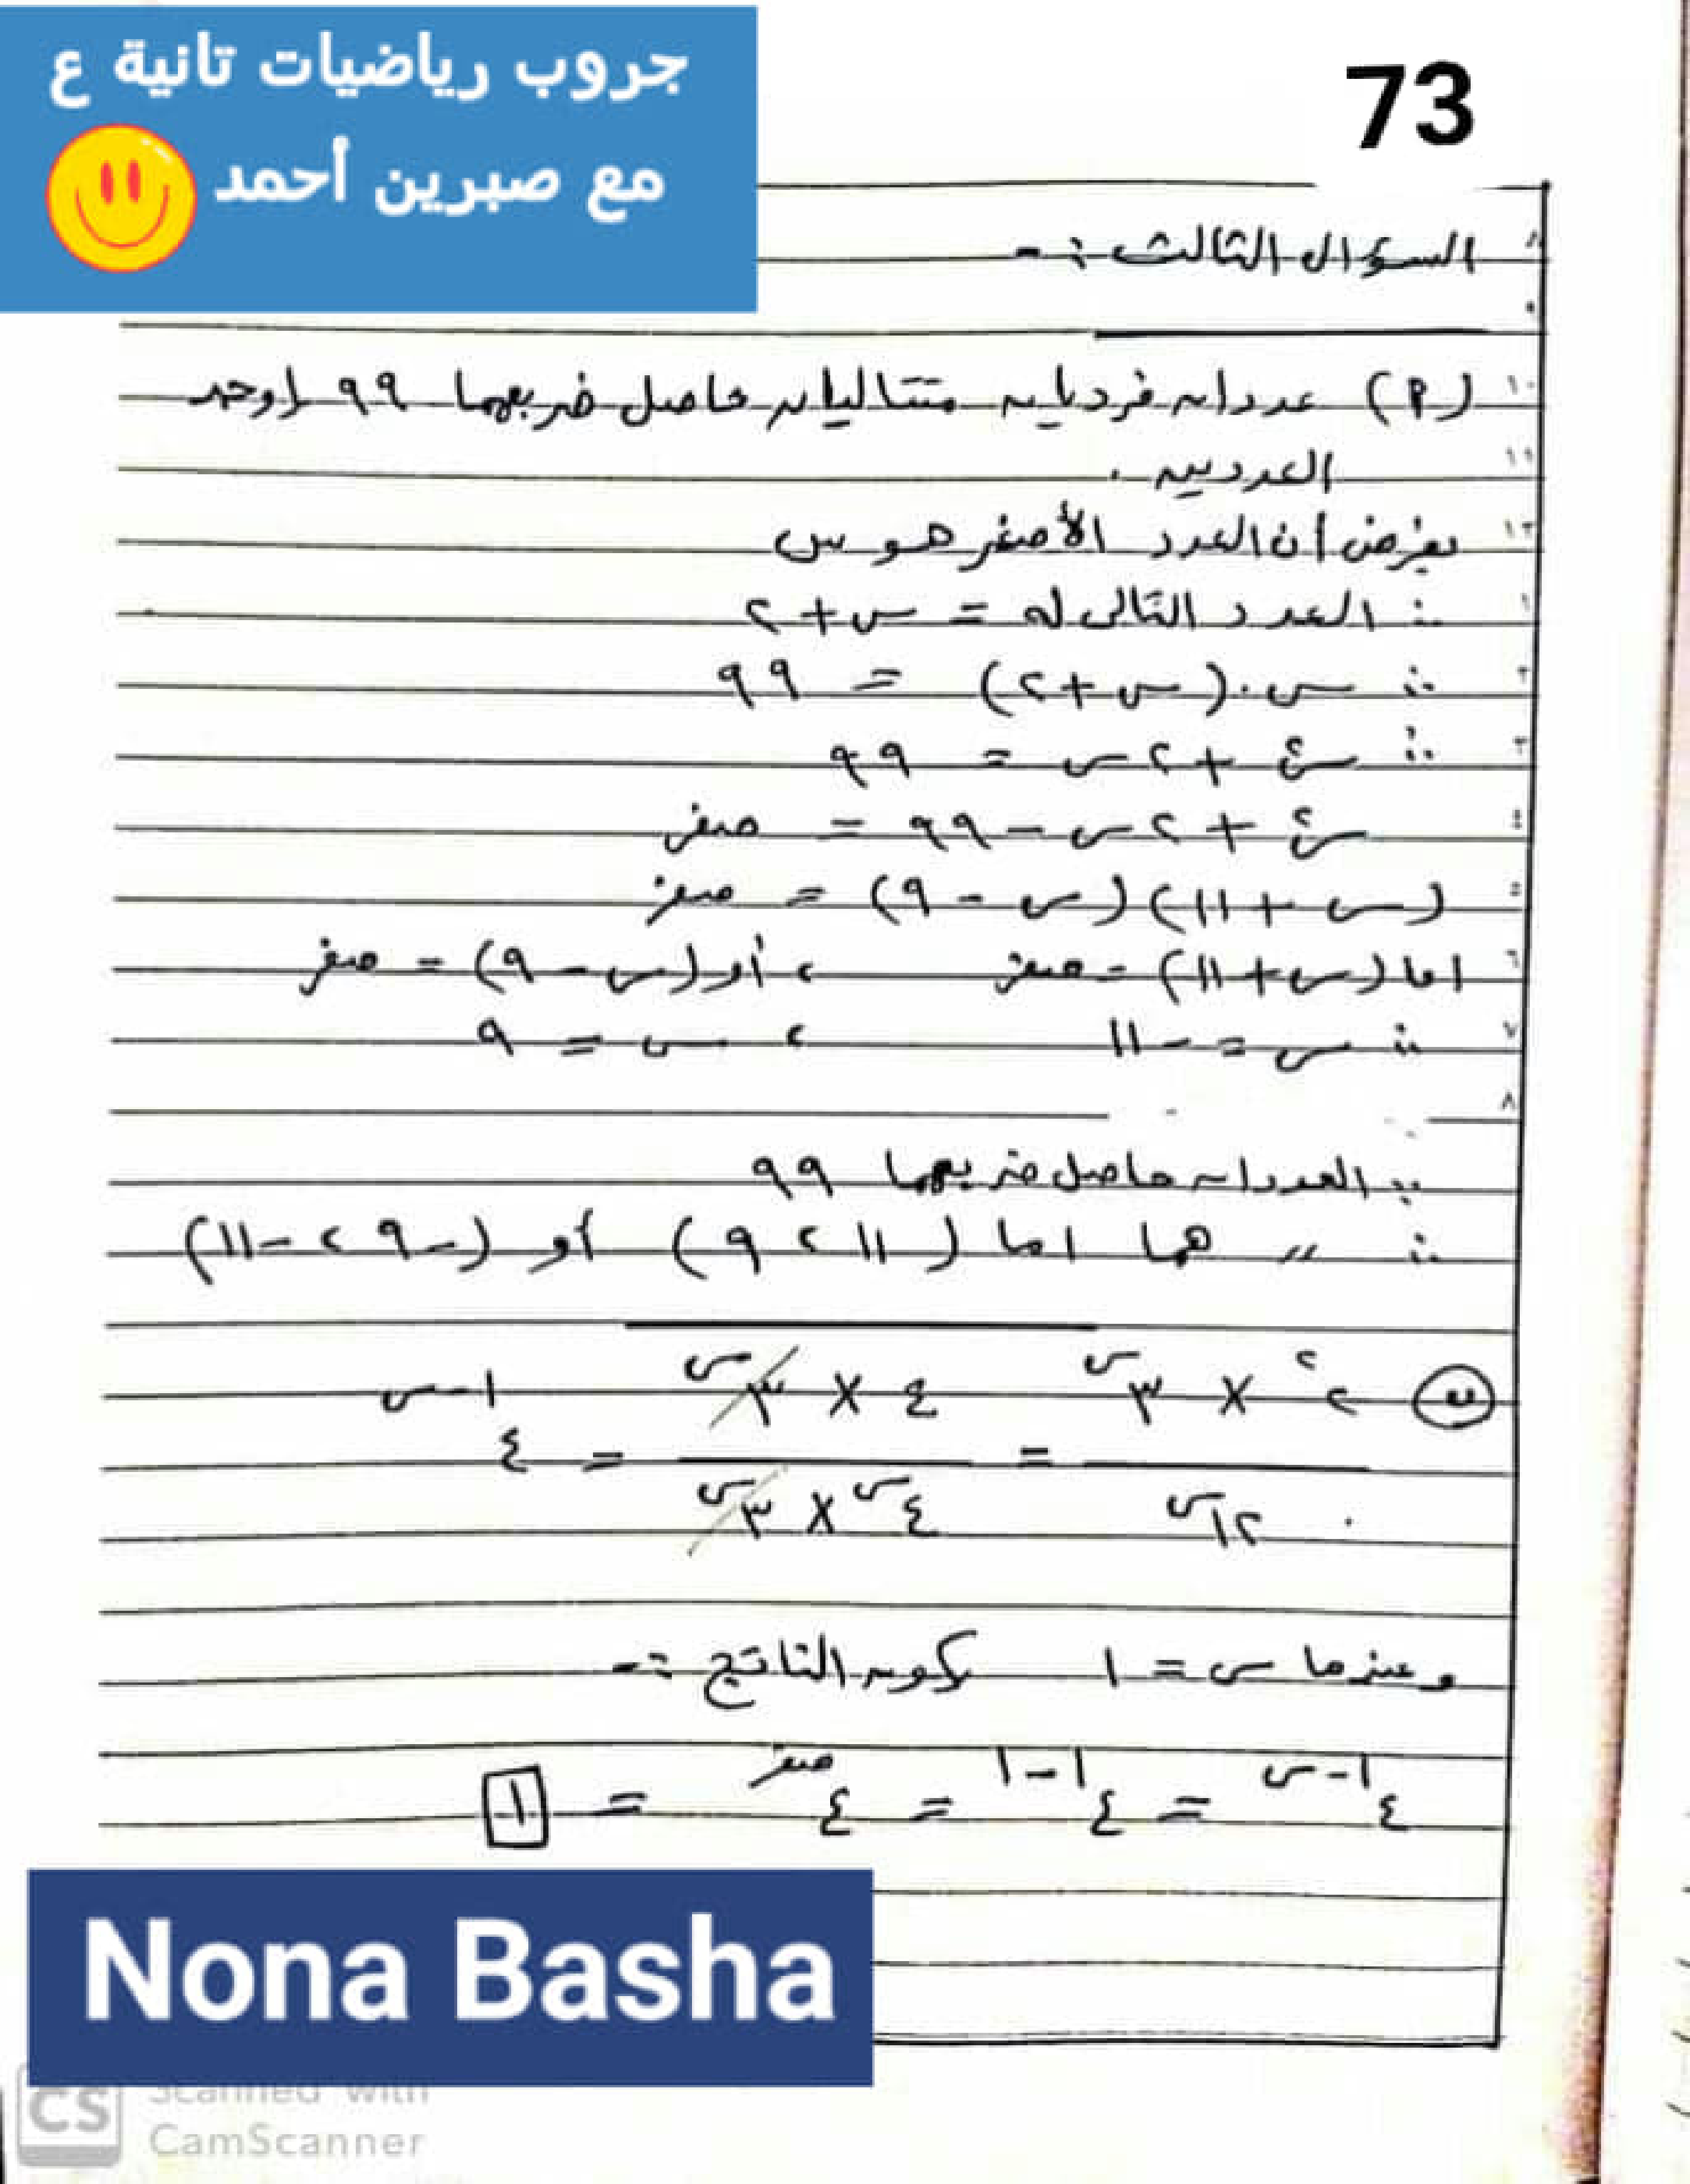 جروب رياضيات تانية ع
مع صبرين أحمد
73
السؤال الثالث :-
(٩) عددان فرديان متتاليان حاصل ضربهما ٩٩ اوجد
العددين .
بفرض أن العدد الأصغر هو س
∴ العدد التالى له = س + ٢
∴ س . (س + ٢) = ٩٩
∴ س٢ + ٢ س = ٩٩
س٢ + ٢ س - ٩٩ = صفر
(س + ١١) (س - ٩) = صفر
اما (س + ١١) = صفر ، أو (س - ٩) = صفر
∴ س = - ١١ ، س = ٩
∵ العددان حاصل ضربهما ٩٩
∴ " هما اما (١١ ، ٩) أو (-٩ ، -١١)
(ب) ٢^٢ × ٣^س / ١٢^س = ٤ × ٣^س / ٤^س × ٣^س = ٤^(١-س)
وعندما س = ١ يكون الناتج :-
٤^(١-س) = ٤^(١-١) = ٤^صفر = ١
Nona Basha
CS Scanned with
CamScanner